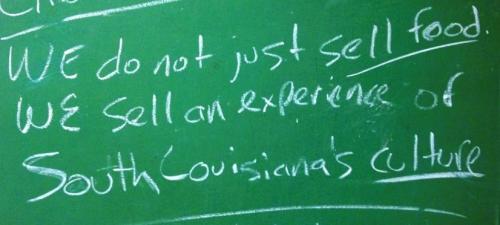 WE do not just sell food.
WE sell an experience of
South Louisiana's culture